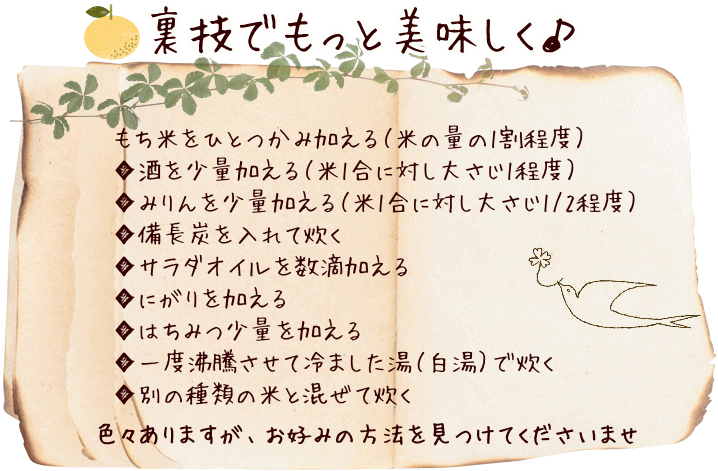 裏技でもっと美味しく♪
もち米をひとつかみ加える(米の量の1割程度)
◆酒を少量加える(米1合に対し大さじ1程度)
◆みりんを少量加える(米1合に対し大さじ1/2程度)
◆備長炭を入れて炊く
◆サラダオイルを数滴加える
◆にがりを加える
◆はちみつ少量を加える
◆一度沸騰させて冷ました湯(白湯)で炊く
◆別の種類の米と混ぜて炊く
色々ありますが、お好みの方法を見つけてくださいませ